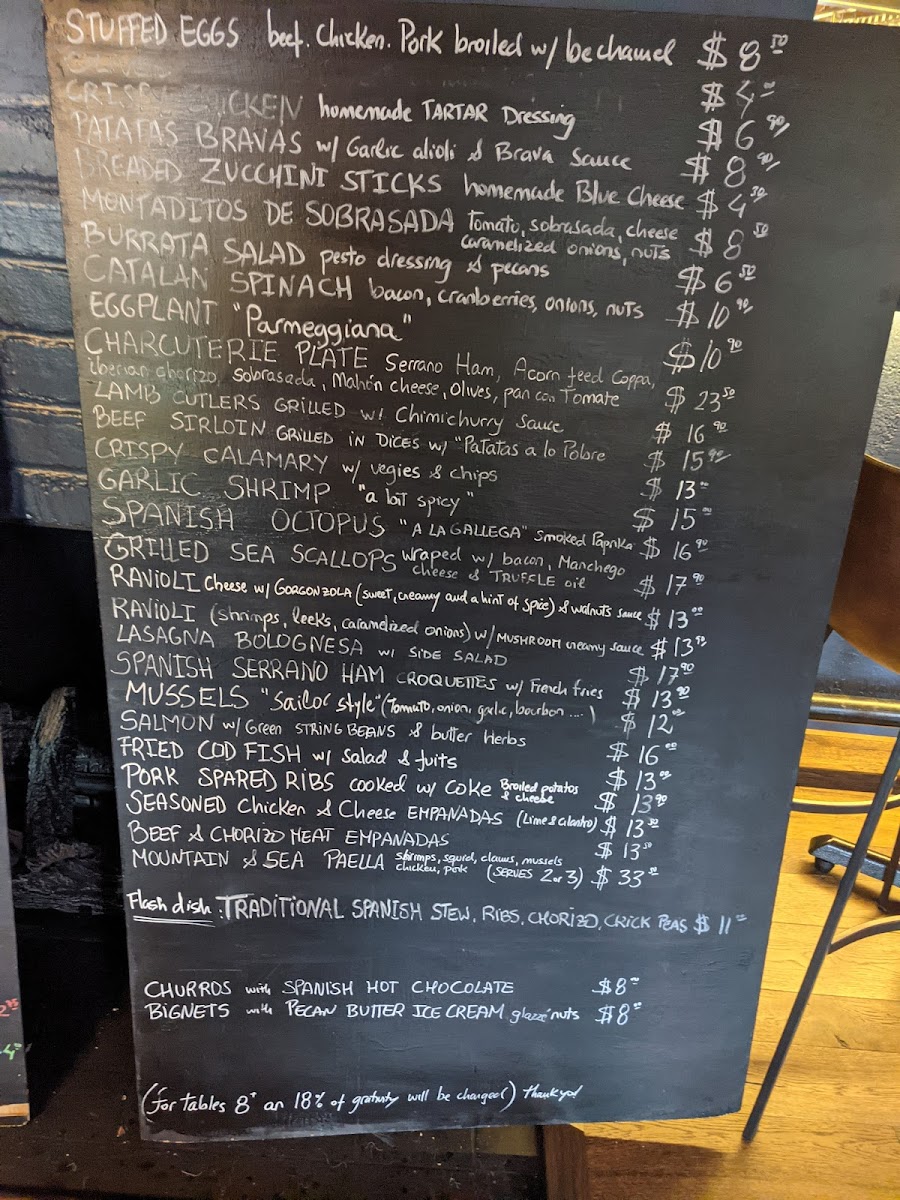 STUFFED EGGS beef. Chicken. Pork broiled w/ bechamel $8.50
OLIVES $4.00
CRISPY CHICKEN homemade TARTAR Dressing $6.90/
PATATAS BRAVAS w/ Garlic alioli & Brava Sauce $8.90/
BREADED ZUCCHINI STICKS homemade Blue Cheese $4.50
MONTADITOS DE SOBRASADA Tomato, sobrasada, cheese $8.50
caramelized onions, nuts
BURRATA SALAD pesto dressing & pecans $6.50
CATALAN SPINACH bacon, cranberries, onions, nuts $10.90
EGGPLANT "Parmeggiana" $10.90
CHARCUTERIE PLATE Serrano Ham, Acorn feed Coppa,
iberian chorizo, sobrasada, Mahón cheese, Olives, pan con Tomate $23.50
LAMB CUTLERS GRILLED w/ Chimichurry Sauce $16.90
BEEF SIRLOIN GRILLED IN DICES w/ "Patatas a lo Pobre $15.90/
CRISPY CALAMARY w/ vegies & chips $13.00
GARLIC SHRIMP "a bit spicy" $15.00
SPANISH OCTOPUS "A LA GALLEGA" smoked Paprika $16.90
GRILLED SEA SCALLOPS wraped w/ bacon, Manchego
cheese & TRUFFLE oil $17.90
RAVIOLI Cheese w/ GORGONZOLA (sweet, creamy and a hint of spice) & walnuts sauce $13.00
RAVIOLI (shrimps, leeks, caramelized onions) w/ MUSHROOM creamy sauce $13.90
LASAGNA BOLOGNESA w/ SIDE SALAD $17.90
SPANISH SERRANO HAM CROQUETTES w/ French fries $13.90
MUSSELS "Sailor style" (Tommato, onion, garlic, bourbon ....) $12.00
SALMON w/ Green STRING BEANS & butter Herbs $16.00
FRIED COD FISH w/ Salad & fuits $13.00
PORK SPARED RIBS cooked w/ Coke Broiled potatos & cheese $13.90
SEASONED Chicken & Cheese EMPANADAS (Lime & cilantro) $13.50
BEEF & CHORIZO MEAT EMPANADAS $13.50
MOUNTAIN & SEA PAELLA shrimps, squid, clams, mussels
chicken, pork (SERVES 2 or 3) $33.00
Flash dish: TRADITIONAL SPANISH STEW, RIBS, CHORIZO, CRICK PEAS $11
CHURROS with SPANISH HOT CHOCOLATE $8
BIGNETS with PECAN BUTTER ICE CREAM, glazze nuts $8
(for tables 8+ an 18% of gratuity will be charged) thank yo!